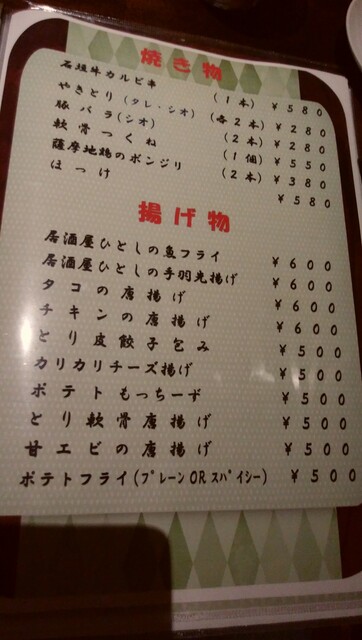 焼き物
石垣牛カルビ串 (1本) ¥580
やきとり(タレ・シオ) (各2本) ¥280
豚バラ(シオ) (2本) ¥280
軟骨つくね (1個) ¥550
薩摩地鶏のボンジリ (2本) ¥380
ほっけ ¥580
揚げ物
居酒屋ひとしの魚フライ ¥600
居酒屋ひとしの手羽先揚げ ¥600
タコの唐揚げ ¥600
チキンの唐揚げ ¥600
とり皮餃子包み ¥500
カリカリチーズ揚げ ¥500
ポテトもっちーず ¥500
とり軟骨唐揚げ ¥500
甘エビの唐揚げ ¥500
ポテトフライ(プレーンORスパイシー) ¥500